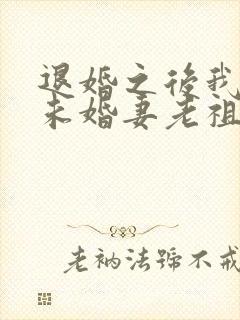 退婚之後我
未婚妻老祖
老衲法號不戒